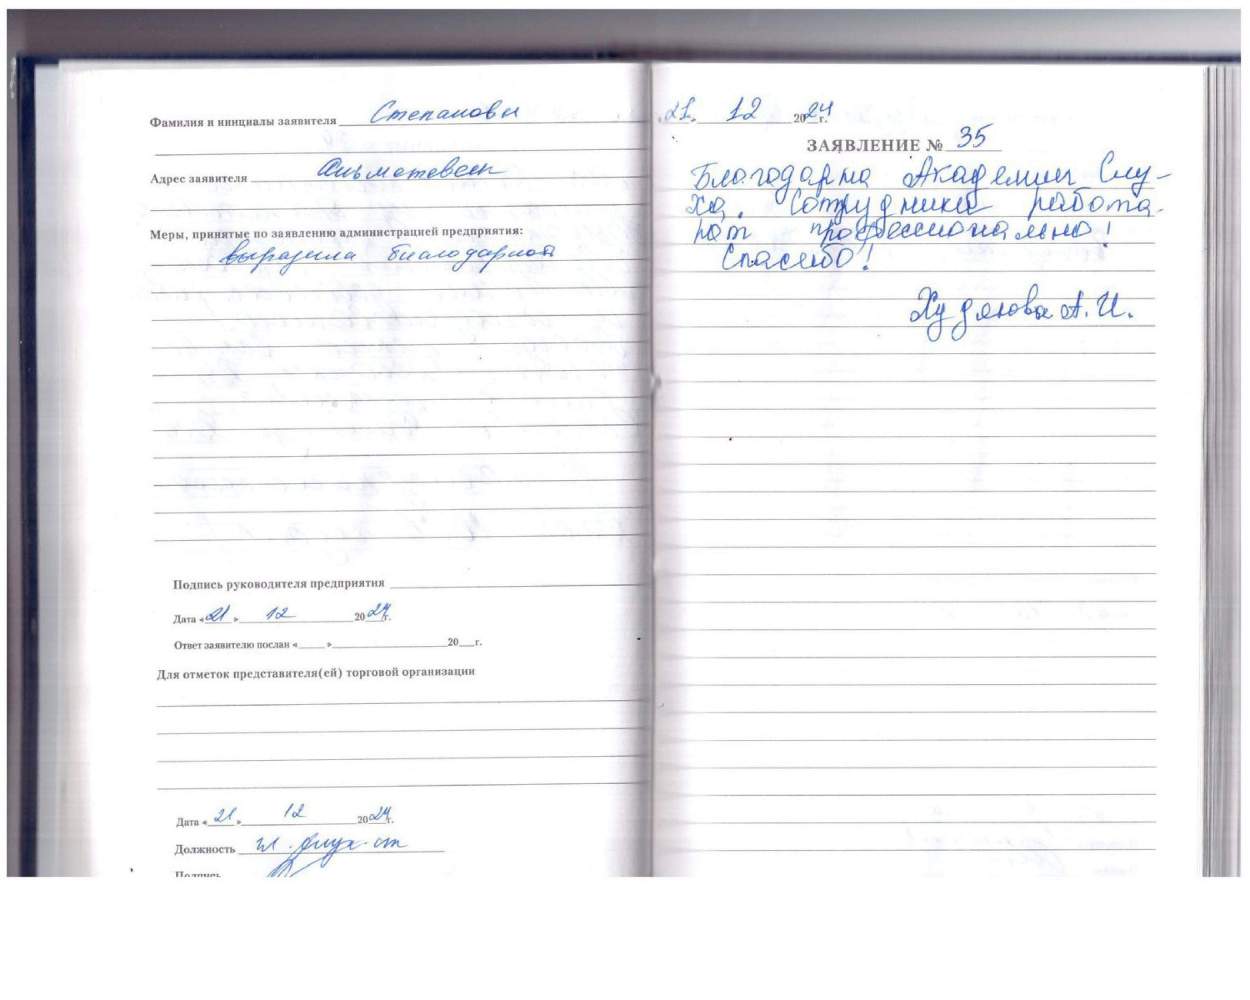 Фамилия и инициалы заявителя Степановы
Адрес заявителя Альметевск
Меры, принятые по заявлению администрацией предприятия:
выразила благодарной
Подпись руководителя предприятия
Дата «21» 12 2024г.
Ответ заявителю послан « » 20 г.
Для отметок представителя(ей) торговой организации
Дата «21» 12 2024г.
Должность
Подпись
«21» 12 2024г.
ЗАЯВЛЕНИЕ № 35
Благодарна Академии Слу-
ха. Сотрудники работа-
ют профессионально!
Спасибо!
Худякова А. И.